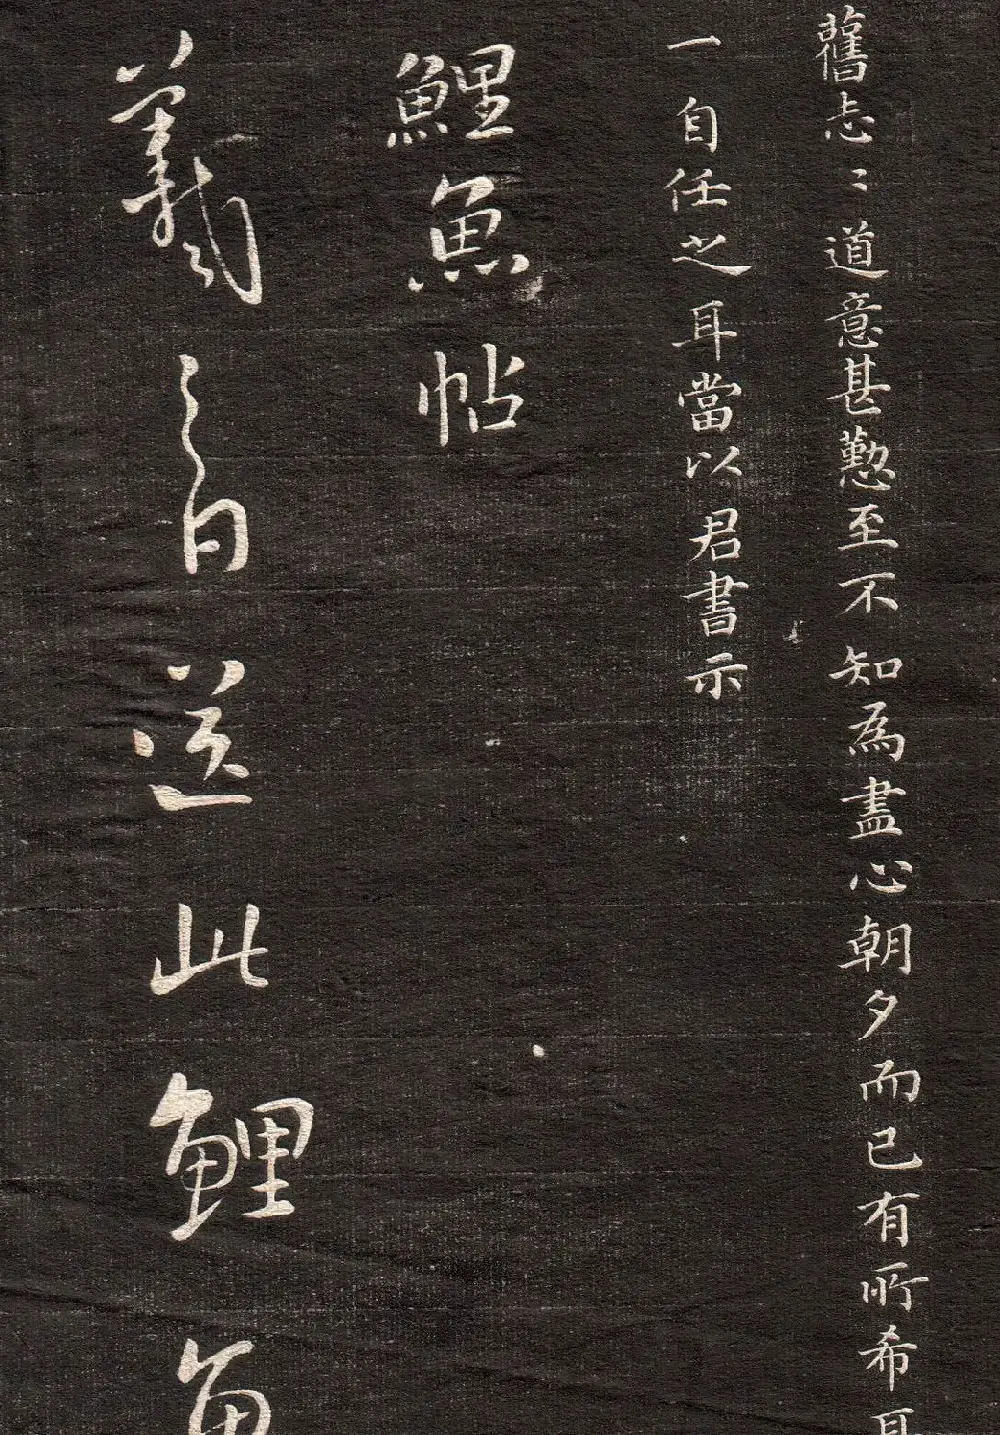 舊志〻道意甚懃至不知為盡心朝夕而已有所希耳
一自任之耳當以君書示
鯉魚帖
羲之白送此鯉魚